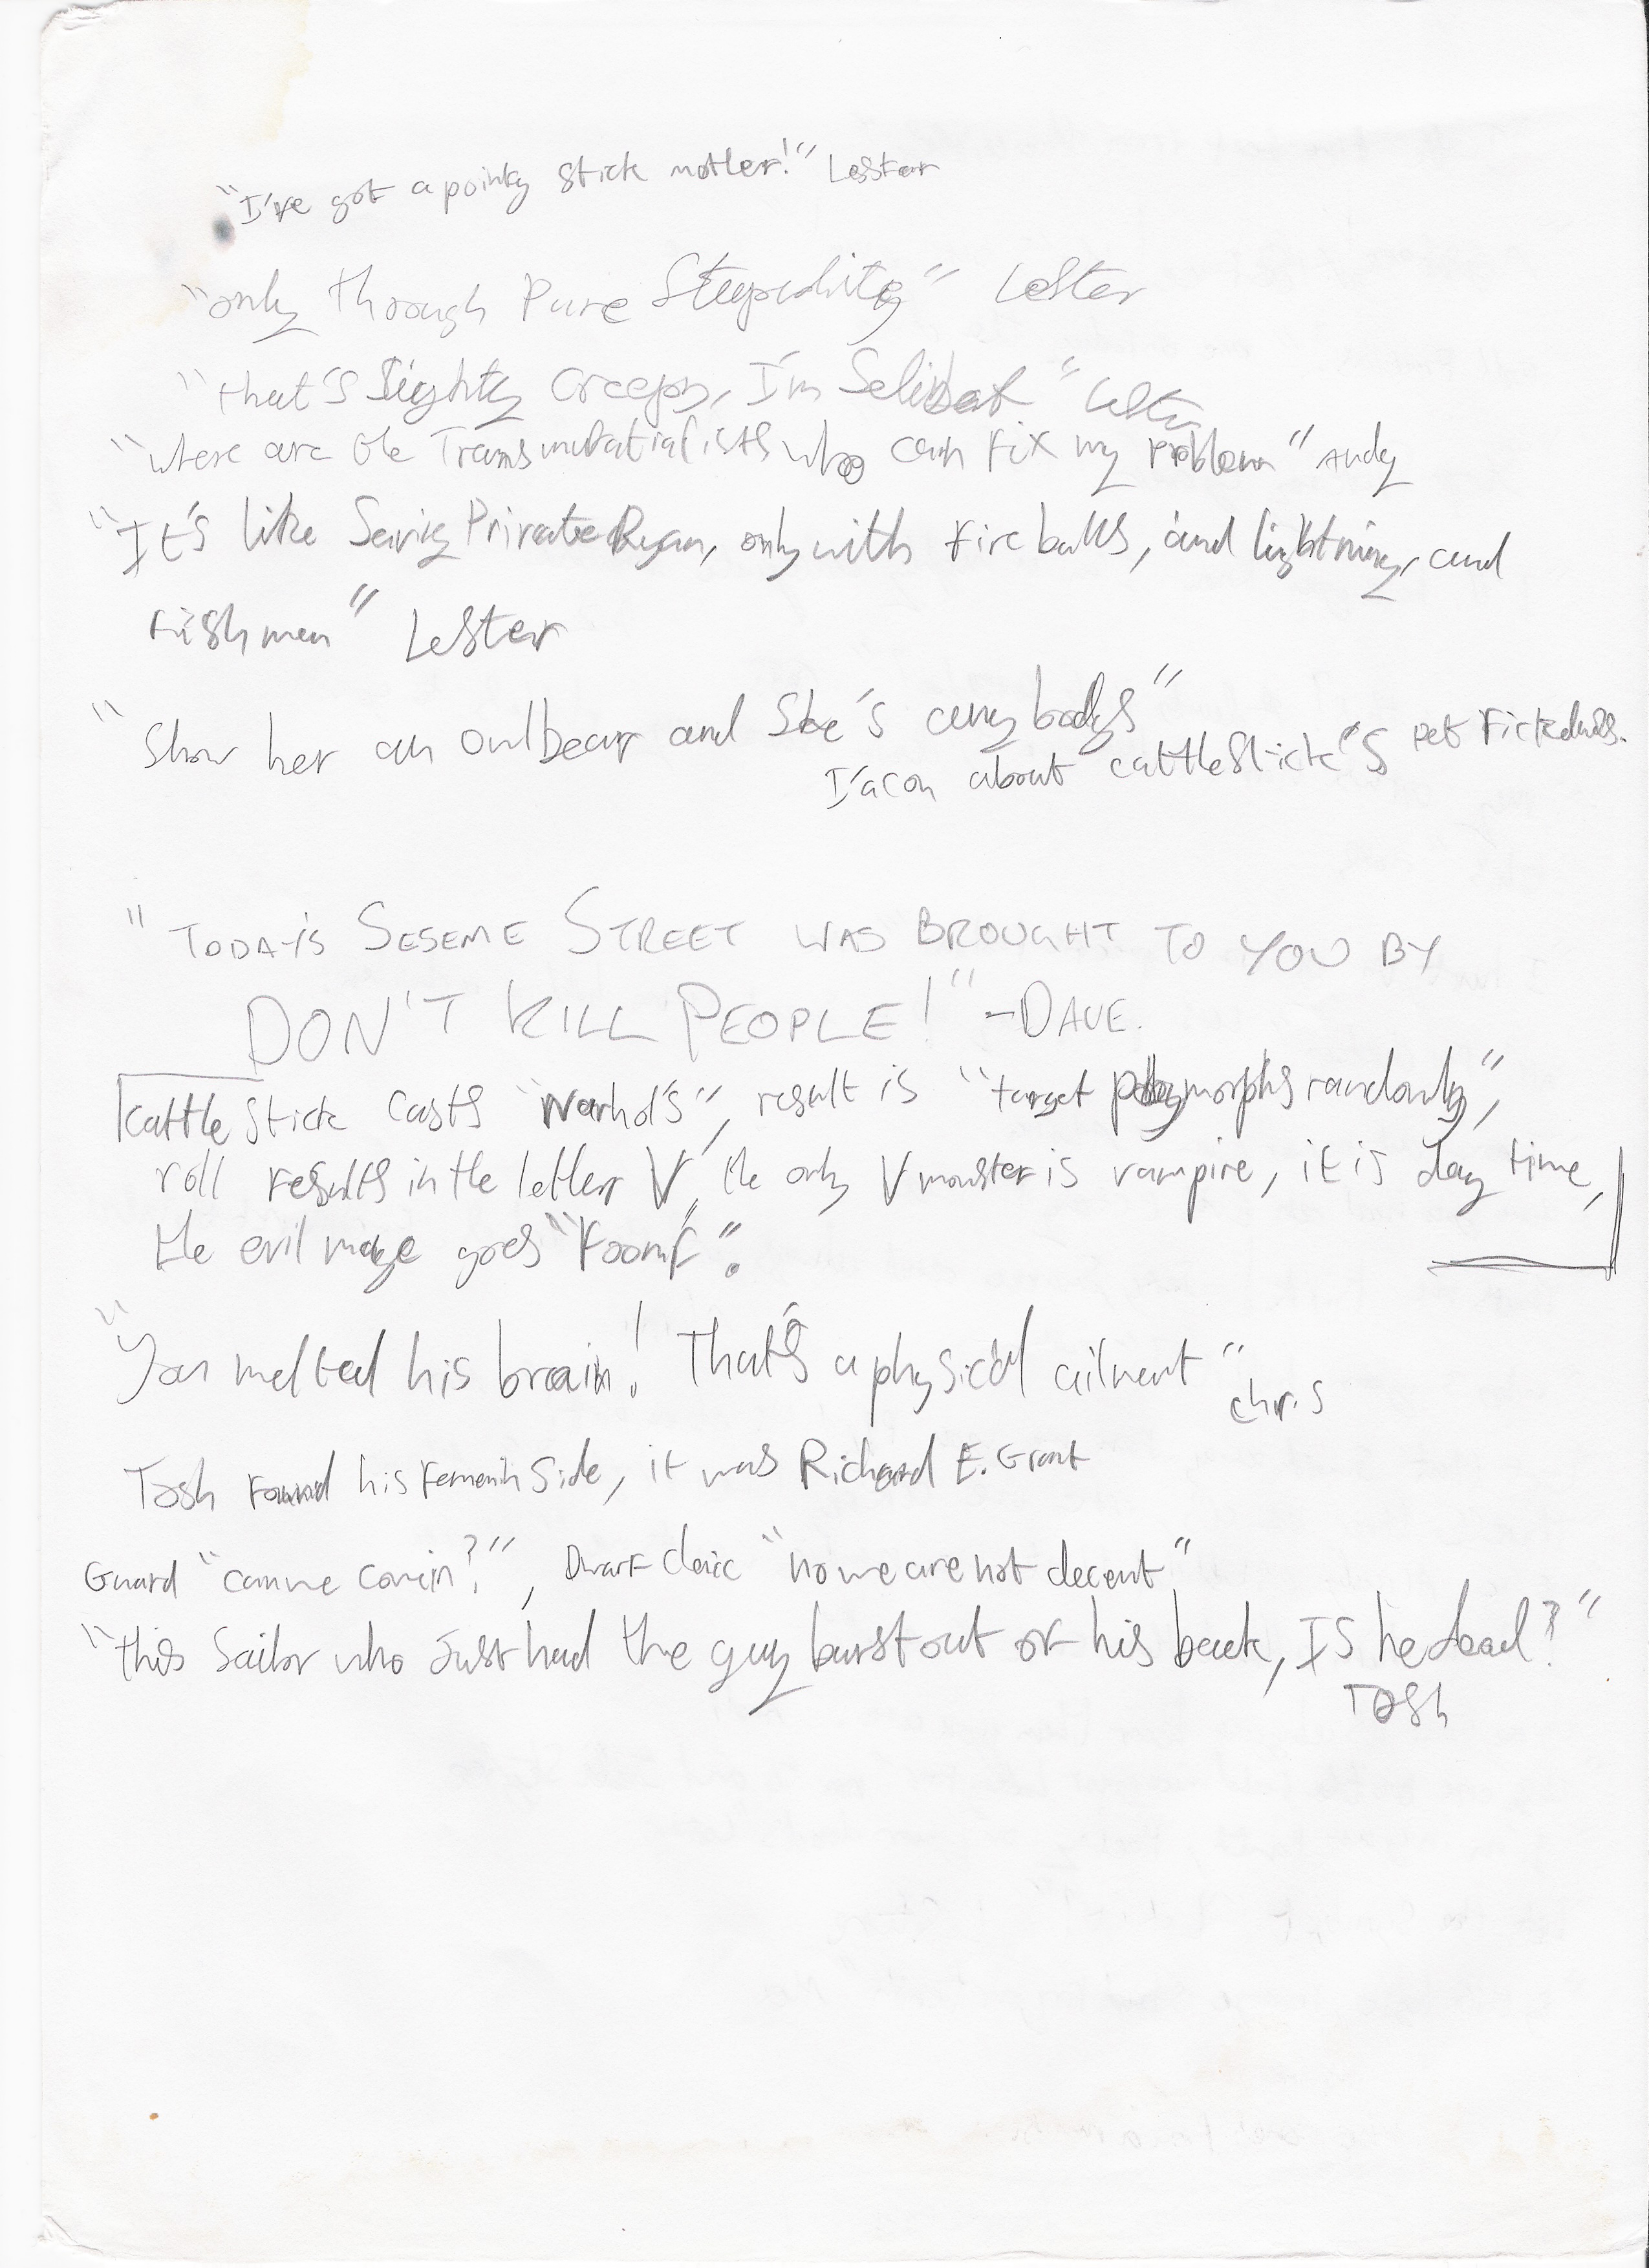 "I've got a pointy stick mother!" Lester
"only through Pure Stupidity" Lester
"that's Slighty Creepy, I'm Selibat" Lester
"where are the Transmutatialists who can fix my problem" Andy
"It's like Saving Private Ryan, only with fire balls, and lightning, and
fishmen" Lester
"Show her an owlbear and She's anybodys"
I'acon about cattlestick's pet
"TODAYS SESEME STREET WAS BROUGHT TO YOU BY
DON'T KILL PEOPLE!" -DAVE.
Cattle stick casts "Warhol's", result is "target polymorphs randomly",
roll results in the letter V, the only V monster is vampire, it is day time,
the evil mage goes "Foomf".
"You melted his brain! That's a physical ailment"
chris
Tosh found his Femenin Side, it was Richard E. Grant
Guard "can we comein?", Dwarf Cleric "no we are not decent"
"this Sailor who Just had the guy burst out of his back, IS he dead?"
Tosh